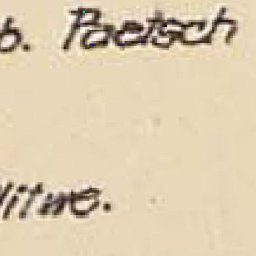 b. Paetsch
Witwe.